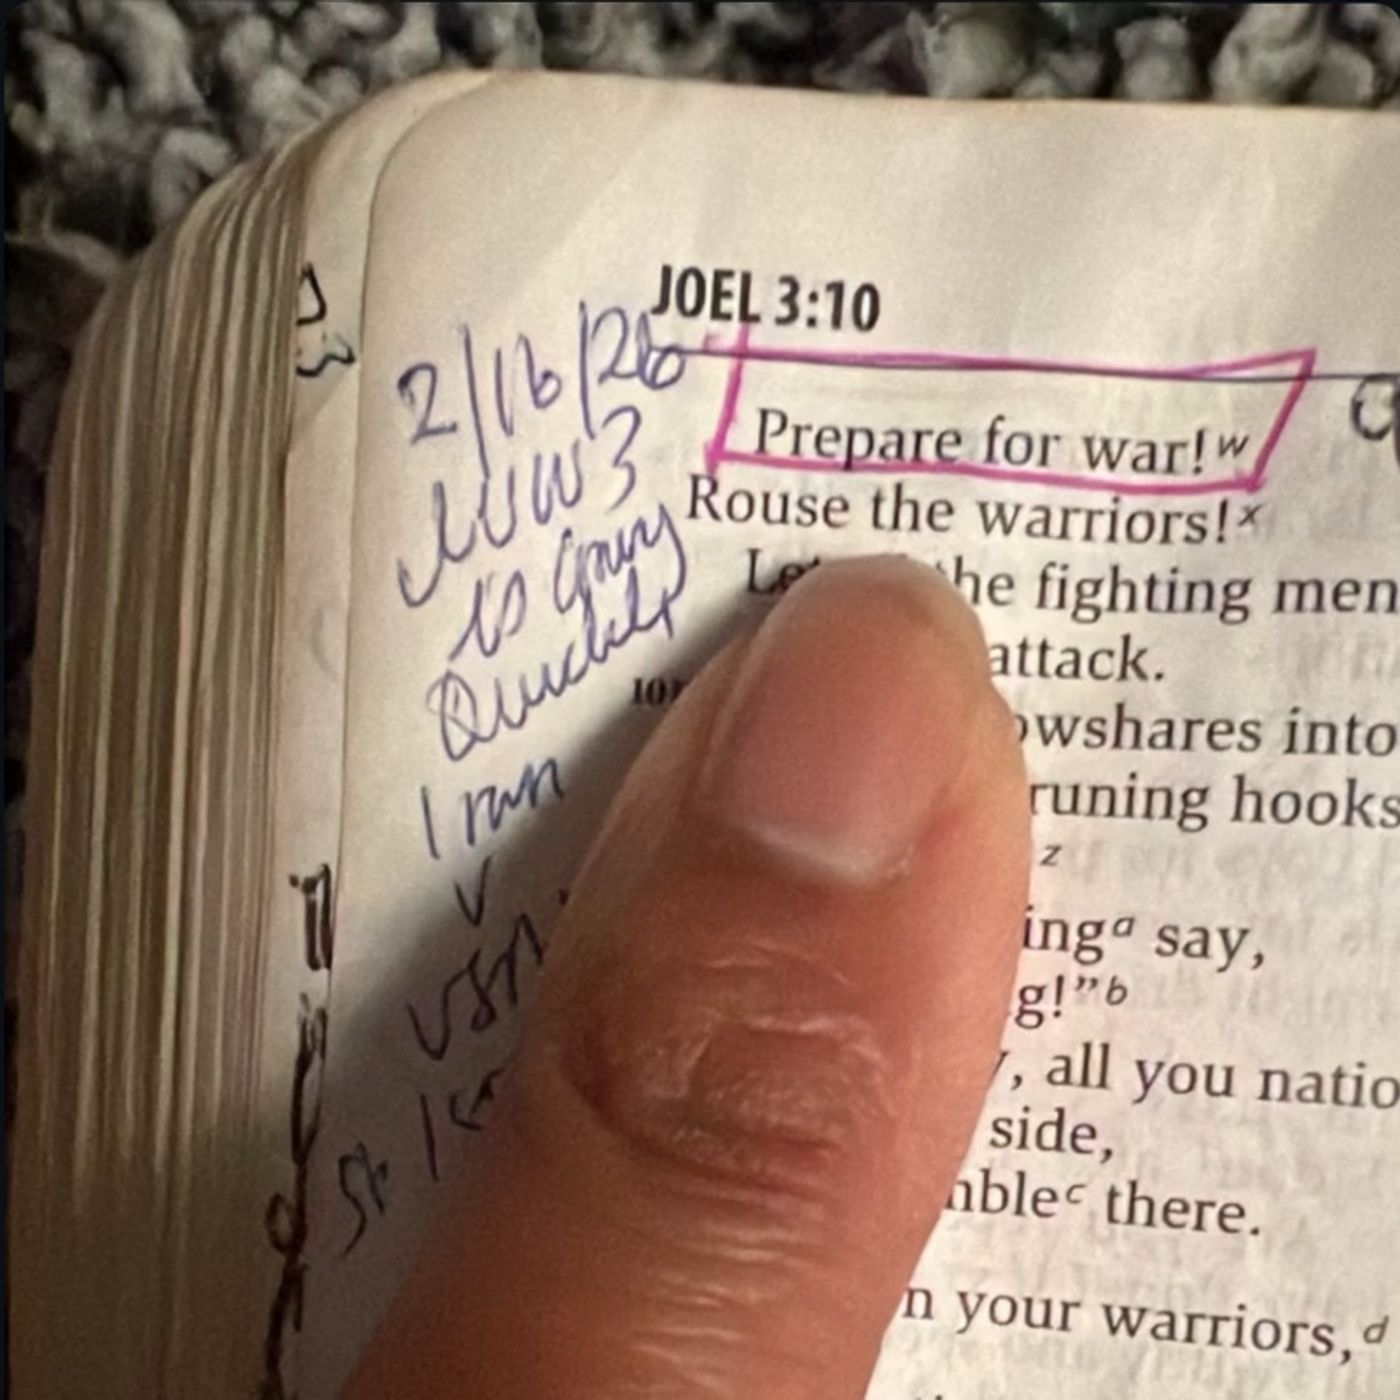 JOEL 3:10
2/16/26
WW3
is Coming
Quickly
Iran
V
USA
Prepare for war!ʷ
Rouse the warriors!ˣ
the fighting men
attack.
10
owshares into
runing hooks
z
ingᵃ say,
g!”ᵇ
, all you natio
side,
mbleᶜ there.
n your warriors,ᵈ